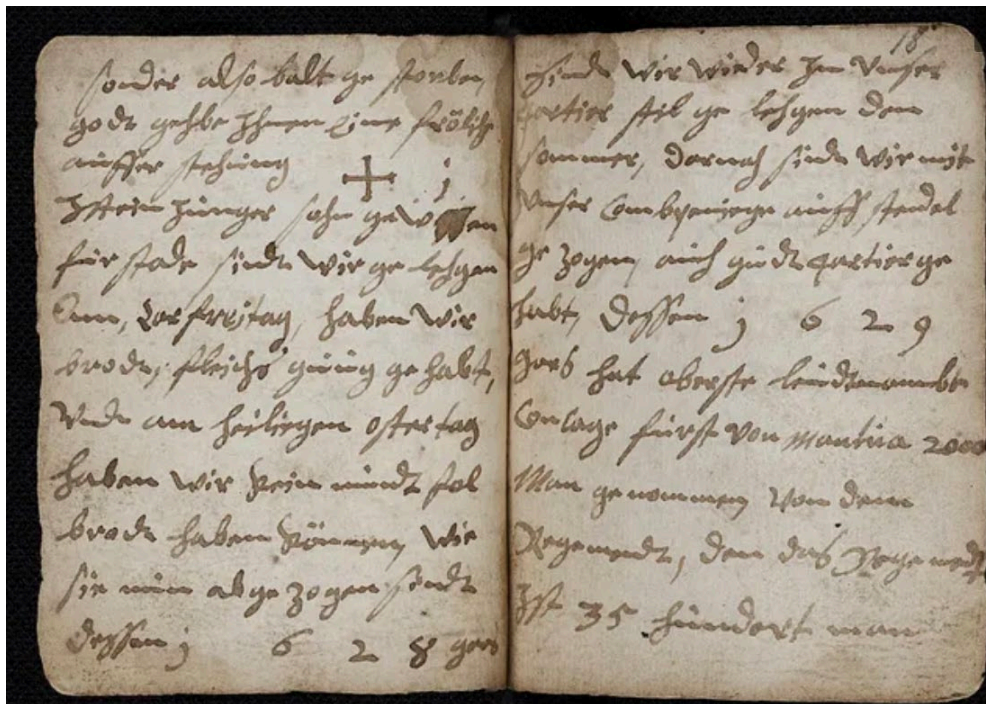 sonder alsobalt ge storben,
godt gehbe Ihnen eine fröliche
auffer stehung + j
Ist ein Junger sohn gewessen
für stade sindt wir ge lehgen
Am, Carfreitag, haben wir
brodt, fleichs gnung ge habt,
Vndt am heiliegen ostertag
haben wir kein mundt fol
brodt haben können, Wie
sie nun abge zogen sindt
dessen j 6 2 8 gars
18
sindt Wir Wieder In Vnser
qartier stil ge lehgen den
sommer, darnach sindt Wir mit
Vnser Combpeniege auff stendel
ge zogen, auch gudt qartier ge
habt, dessen j 6 2 9
gars hat oberste leudenambt
Conlage fürst von mantua 2000
Man genommen, Von dem
Regemendt, den das Regemendt
Ist 35 hundert man